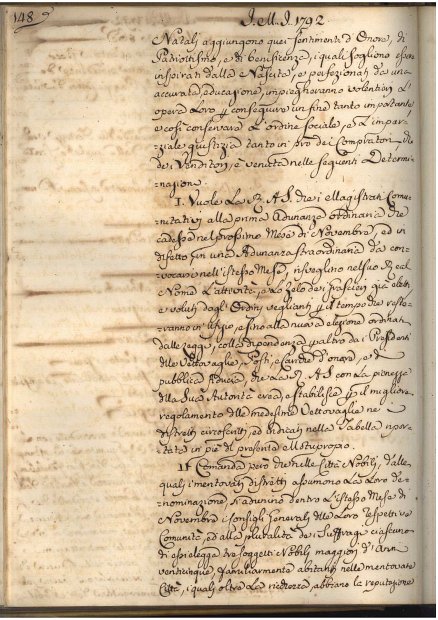 148.
I. M. I. 1792
Natali aggiungono quei sentimenti d'Onore, di
Patriottismo, e di beneficenza, i quali sogliono essere
inspirati dalla Nascita, e perfezionati da una
accurata educazione, impiegheranno volentieri L'
opera Loro p conseguire un fine tanto importante
e così conservare L'ordine sociale, e L'impar-
ziale giustizia tanto in pro dei Compratori che
dei Venditori, è venuta nelle seguenti Determi-
nazione.
I. Vuole La R. A. S. che i Magistrati Comu-
nitativi alla prima Adunanza ordinaria che
cadesse nel prossimo Mese di Novembre, ed in
difetto in una Adunanza straordinaria da con-
vocarsi nell'istesso Mese, risveglino nel suo Real
Nome L'attività, e Lo zelo dei già eletti
e voluti dagl'Ordini veglianti p il tempo che reste-
ranno in Ufizio, e fino alla nuova elezione ordinata
dalle Leggi, colla dipendenza p altro dai Presidenti
delle Vettovaglie, Posti, e Cariche d'onore, e di
pubblica fiducia, che La R. A. S. con La pienezza
della Sua Autorità crea, e stabilisce p il migliore
regolamento delle medesime Vettovaglie nei
Distretti circoscritti, ed indicati nella Tabella ripor-
tata in piè del presente
II Comanda però che nelle Città Nobili, dalle
quali i mentovati distretti assumono La Loro de-
nominazione, si adunino dentro L'istesso Mese di
Novembre i Consigli Generali delle Loro respettive
Comunità, ed alla pluralità dei Suffragi ciascuno
di essi elegga tre soggetti Nobili maggiori d'Anni
venticinque, familiarmente abitanti nelle mentovate
Città, i quali oltre La ricchezza, abbiano la reputazione